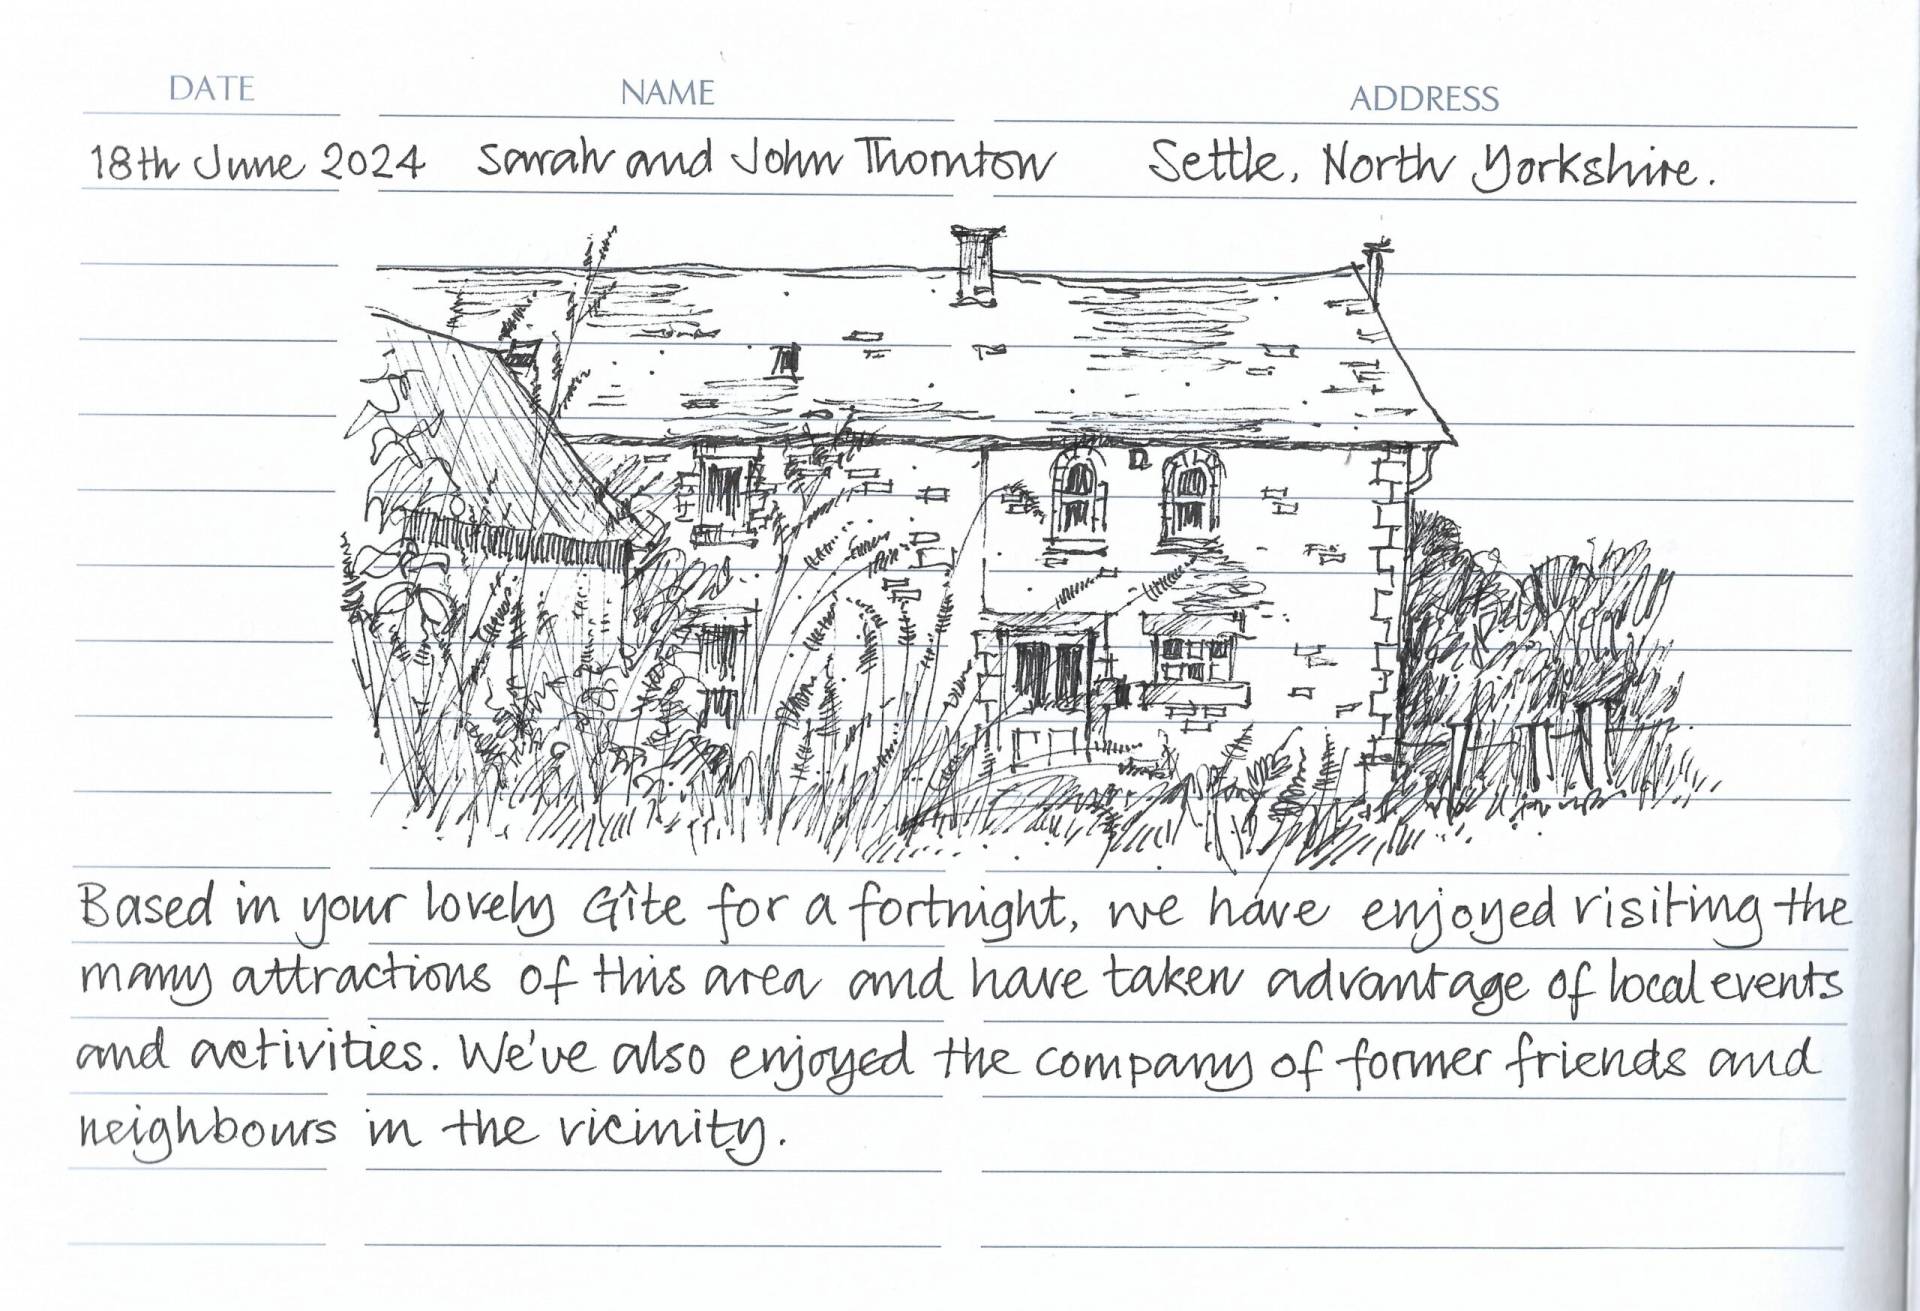 DATE NAME ADDRESS
18th June 2024 Sarah and John Thornton Settle, North Yorkshire.
Based in your lovely Gîte for a fortnight, we have enjoyed visiting the
many attractions of this area and have taken advantage of local events
and activities. We've also enjoyed the company of former friends and
neighbours in the vicinity.